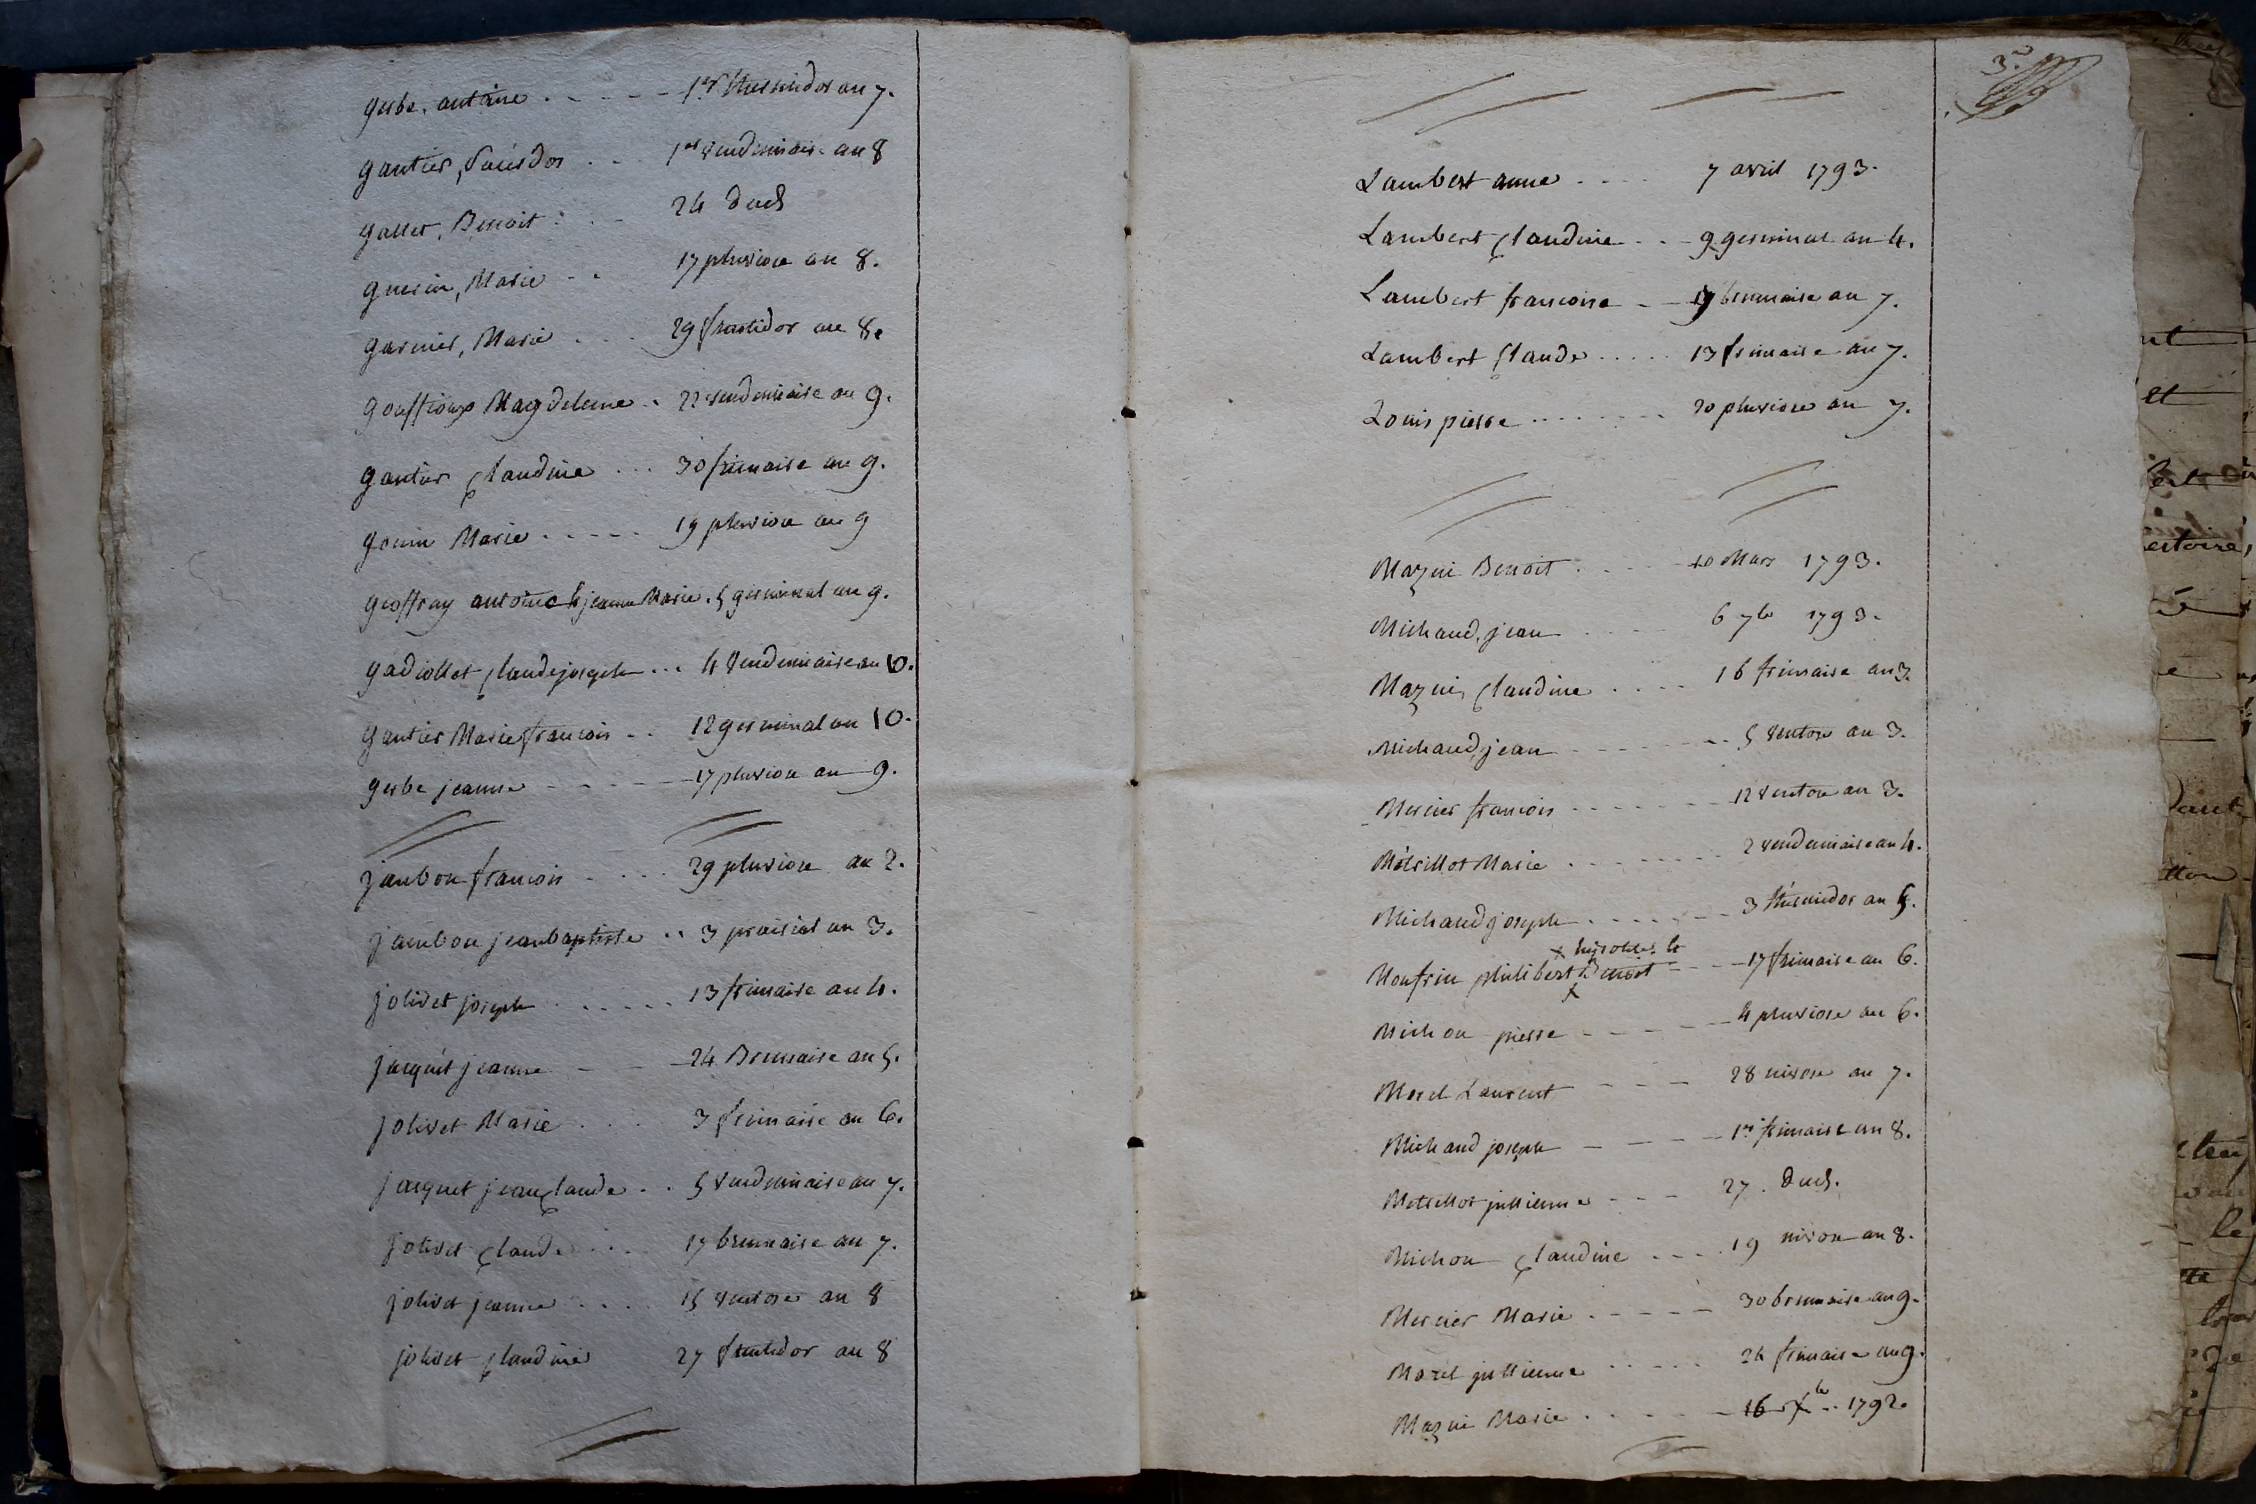 gerbe, antoine . . . . . 1er thermidor an 7.
gautier, . . . 1er vendemiaire an 8
gallet, Benoit . . . 24 dud
guerin, Marie . . 17 pluviose an 8.
garnier, Marie . . . . 29 fructidor an 8.
Magdeleine . 22 vendemiaire an 9.
gautier Claudine . . . 30 frimaire an 9.
gouin Marie . . . . . 19 pluviose an 9
geoffray antoine & jeanne Marie . 5 germinal an 9.
gadiollet Claude joseph . . . 4 vendemiaire an 10.
gautier Marie francois . . 12 germinal an 10.
gerbe jeanne . . . . . 17 pluviose an 9.
jambon francois . . . . 29 pluviose an 2.
jambon jean baptiste . . 3 prairial an 3.
jolivet joseph . . . . . 13 frimaire an 4.
jacquet jeanne - - 24 Brumaire an 5.
jolivet Marie . . . . 3 frimaire an 6.
jacquet jean Claude . . 5 vendemiaire an 7.
jolivet Claude . . . . 17 brumaire an 7.
jolivet jeanne . . . . 15 ventose an 8
jolivet Claudine 27 fructidor an 8
3e
Lambert anne . . . . 7 avril 1793.
Lambert Claudine . . . 9 germinal an 4.
Lambert francoise - - brumaire an 7.
Lambert Claude . . . . . 13 frimaire an 7.
Louis pierre . . . . . . . 20 pluviose an 7.
Mazui Benoit . . . . . 10 Mars 1793.
Michaud, jean . . . . 6 7bre 1793.
Mazui, Claudine . . . . 16 frimaire an 3.
Michaud, jean . . . . . . . 5 ventose an 3.
Mercier francois . . . . . . . 12 ventose an 3.
Metrillot Marie . . . . . . . . 2 vendemiaire an 4.
Michaud joseph . . . . . . . 3 thermidor an 5.
Monfrin philibert Benoit - - - 17 frimaire an 6.
Michon pierre - - - - - 4 pluviose an 6.
Morel Laurent - - - 28 nivose an 7.
Michaud joseph - - - - - 1er frimaire an 8.
Metrillot jullienne - - - 27 . dud.
Michon Claudine - - - . 19 nivose an 8.
Mercier Marie . - - - - 30 brumaire an 9.
Morel jullienne . . . . . 24 frimaire an 9.
Mazui Marie . . . . . - 16 1792.